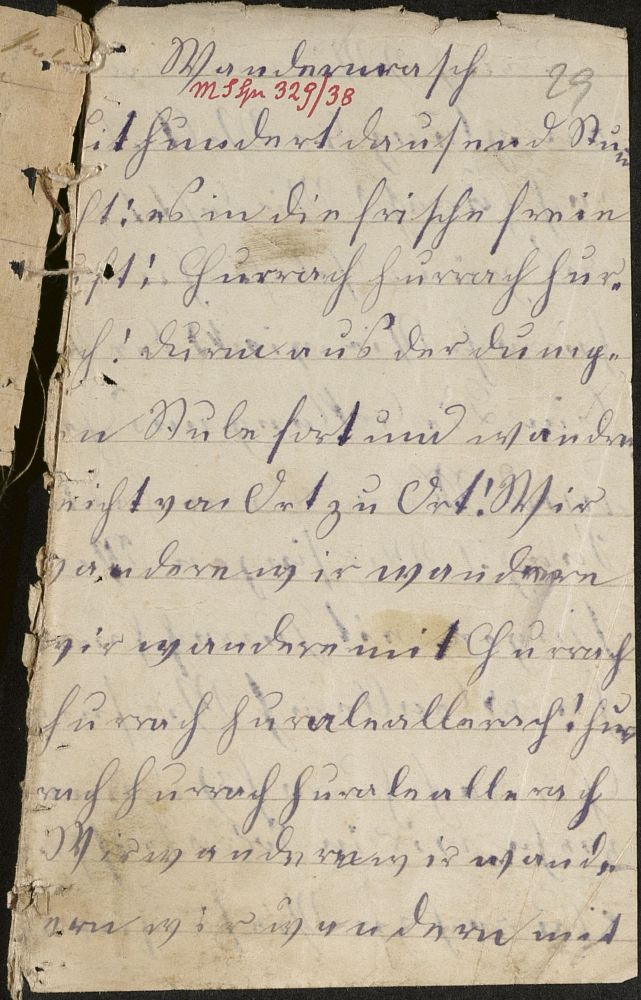 Wandermarsch 29
MS Hu 329/38
it hundert dausend Stun
ft! es in die frische freie
uft! Hurrach hurrach hur=
ch! Drum aus der dump=
n Stube fort und wandre
eicht von Ort zu Ort! Wir
wandern wir wandern
wir wandern mit Hurrach
hurrach huraleallerach! hur
rach hurrach huraleallerach
Wir wandern wir wand=
ern wir wandern mit